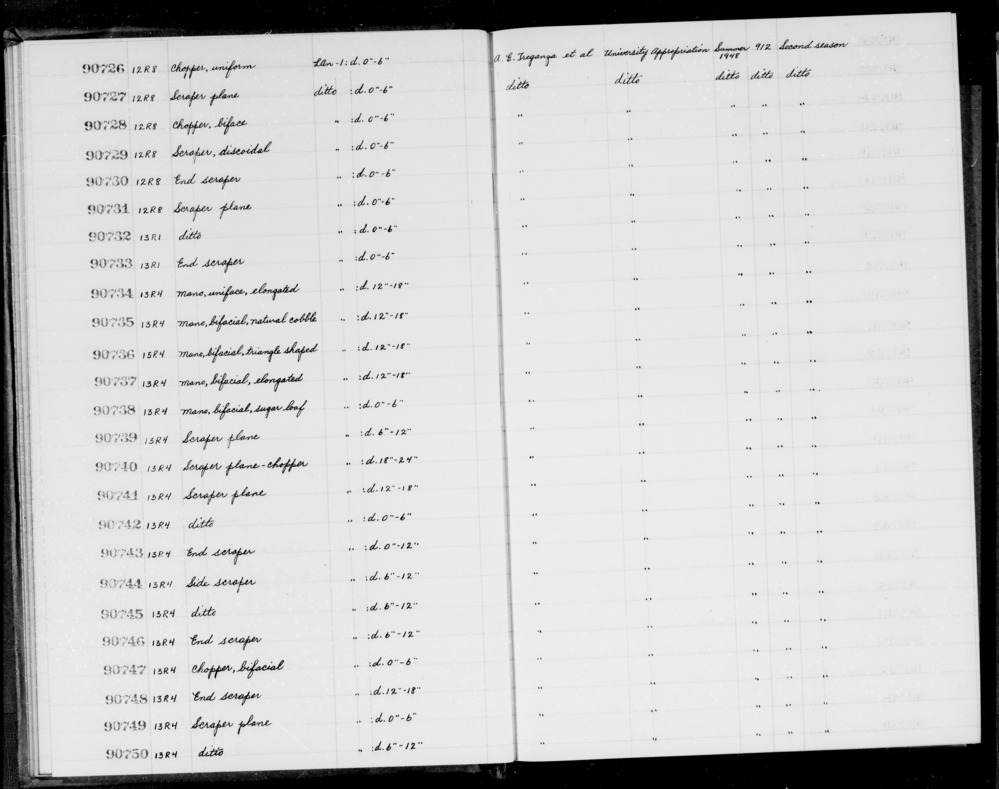 90726 12R8 Chopper, uniform LAn-1: d. 0"-6" A. E. Treganza et al University Appropriation Summer 1948 912 Second season
90727 12R8 Scraper plane ditto : d. 0"-6" ditto ditto ditto ditto ditto
90728 12R8 Chopper, biface " : d. 0"-6" " " " " "
90729 12R8 Scraper, discoidal " : d. 0"-6" " " " " "
90730 12R8 End scraper " : d. 0"-6" " " " " "
90731 12R8 Scraper plane " : d. 0"-6" " " " " "
90732 13R1 ditto " : d. 0"-6" " " " " "
90733 13R1 End scraper " : d. 0"-6" " " " " "
90734 13R4 Mano, uniface, elongated " : d. 12"-18" " " " " "
90735 13R4 Mano, bifacial, natural cobble " : d. 12"-18" " " " " "
90736 13R4 Mano, bifacial, triangle shaped " : d. 12"-18" " " " " "
90737 13R4 Mano, bifacial, elongated " : d. 12"-18" " " " " "
90738 13R4 Mano, bifacial, sugar loaf " : d. 0"-6" " " " " "
90739 13R4 Scraper plane " : d. 6"-12" " " " " "
90740 13R4 Scraper plane-chopper " : d. 18"-24" " " " " "
90741 13R4 Scraper plane " : d. 12"-18" " " " " "
90742 13R4 ditto " : d. 0"-6" " " " " "
90743 13R4 End scraper " : d. 0"-12" " " " " "
90744 13R4 Side scraper " : d. 6"-12" " " " " "
90745 13R4 ditto " : d. 6"-12" " " " " "
90746 13R4 End scraper " : d. 6"-12" " " " " "
90747 13R4 Chopper, bifacial " : d. 0"-6" " " " " "
90748 13R4 End scraper " : d. 12"-18" " " " " "
90749 13R4 Scraper plane " : d. 0"-6" " " " " "
90750 13R4 ditto " : d. 6"-12" " " " " "